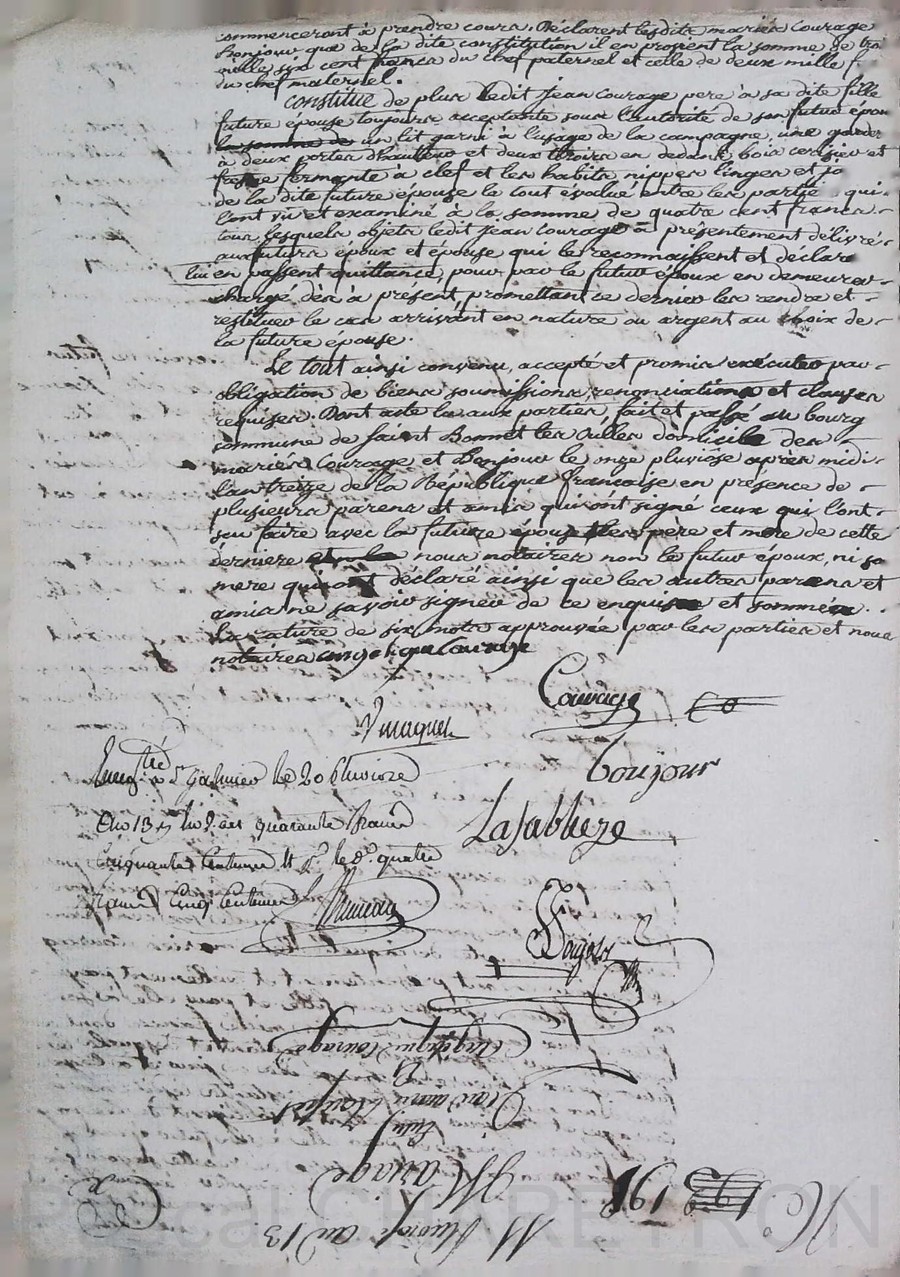 commenceront à prendre cours. Déclarent lesdits mariés Courage
Bonjour que de la dite constitution il en provient la somme de troi
mille six cent francs du chef paternel et celle de deux mille f.
du chef maternel.
constitue de plus ledit Jean Courage pere à sa dite fille
future épouse toujours acceptante sous l'autorité de son futur épou
la somme de un lit garni à l'usage de la campagne, une garder
à deux portes d'hauteur et deux tiroirs en dedans, bois cerisier et
fermante à clef et les habits nippes linges et
de la dite future épouse le tout évalué entre les partie qui
l'ont vu et examiné à la somme de quatre cent francs
tous lesquels objets ledit Jean Courage a présentement délivré
aux futurs époux et épouse qui le reconnaissent et déclare
lui en passent quittance, pour par le futur époux en demeurer
chargé dès à présent, promettant ce dernier les rendre et
restituer le cas arrivant en nature ou argent au choix de
la future épouse.
Le tout ainsi convenu, accepté et promis exécuter par
obligation de biens soumissions, renonciations et clauses
requises. Dont acte lu aux parties, fait et passé au bourg
commune de saint Bonnet les Oulles domicile des
mariés Courage et Bonjour le onze pluviôse après midi
l'an treize de la République française en présence de
plusieurs parens et amis qui ont signé ceux qui l'ont
su faire avec la future épouse les père et mere de cette
derniere et la nous notaires non le futur époux, ni sa
mere qui ont déclaré ainsi que les autres parens et
amis ne savoir signer de ce enquis et sommés.
La rature de six mots approuvée par les parties et nous
notaires angelique Courage
Courage
Bonjour
Enregistré à St galmier le 20 Pluviose
An 13
quarante francs
Cinquante Centimes quatre
francs Cinq Centimes
Lasabliere
Bonjour
Angélique Courage
Mariage
11 Pluviose an 13
N.° 191
Pascal CHAREYRON